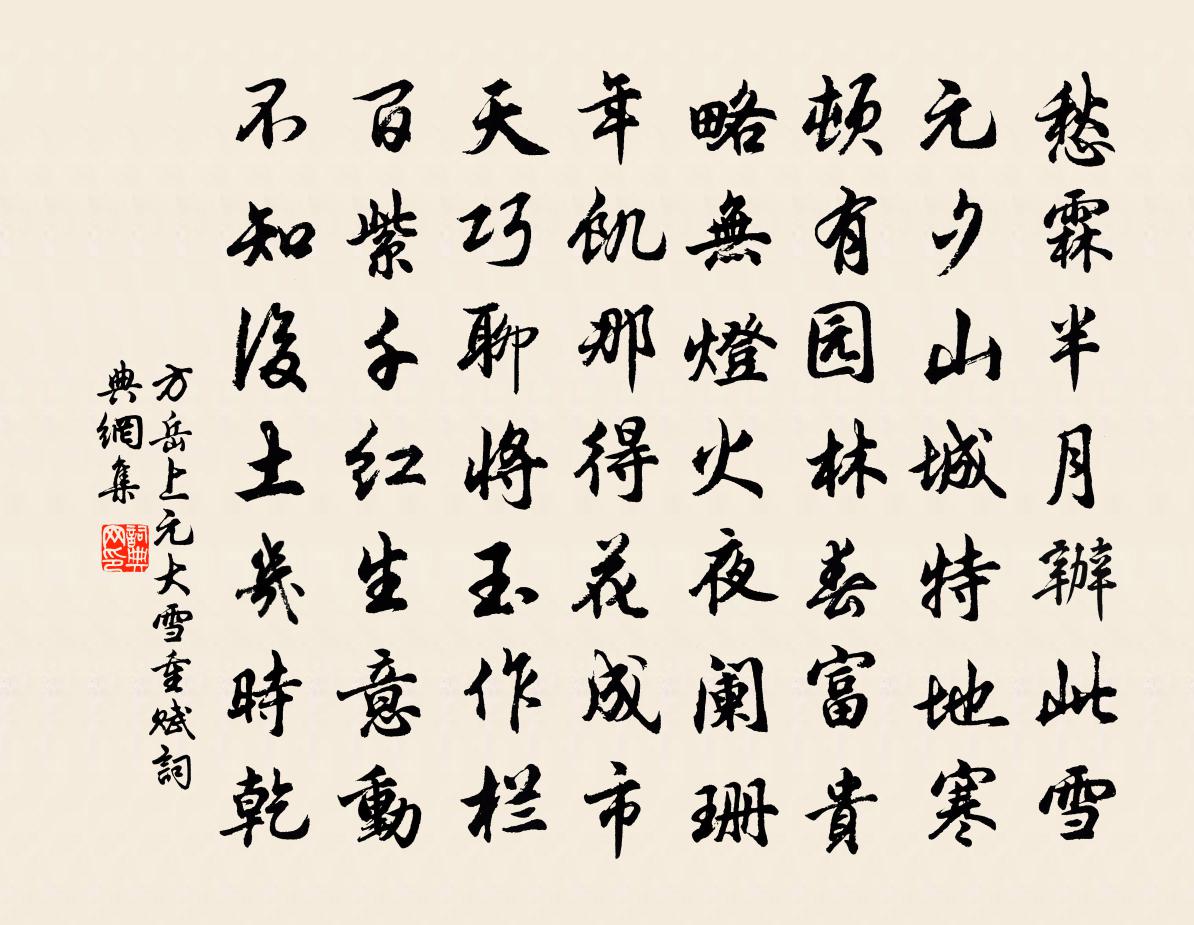 愁霖半月辦此雪
元夕山城特地寒
頓有园林春富貴
略無燈火夜阑珊
年飢那得花成市
天巧聊將玉作栏
百紫千红生意動
不知後土幾時乾
方岳上元大雪重赋詞
典網集
詞典
网印